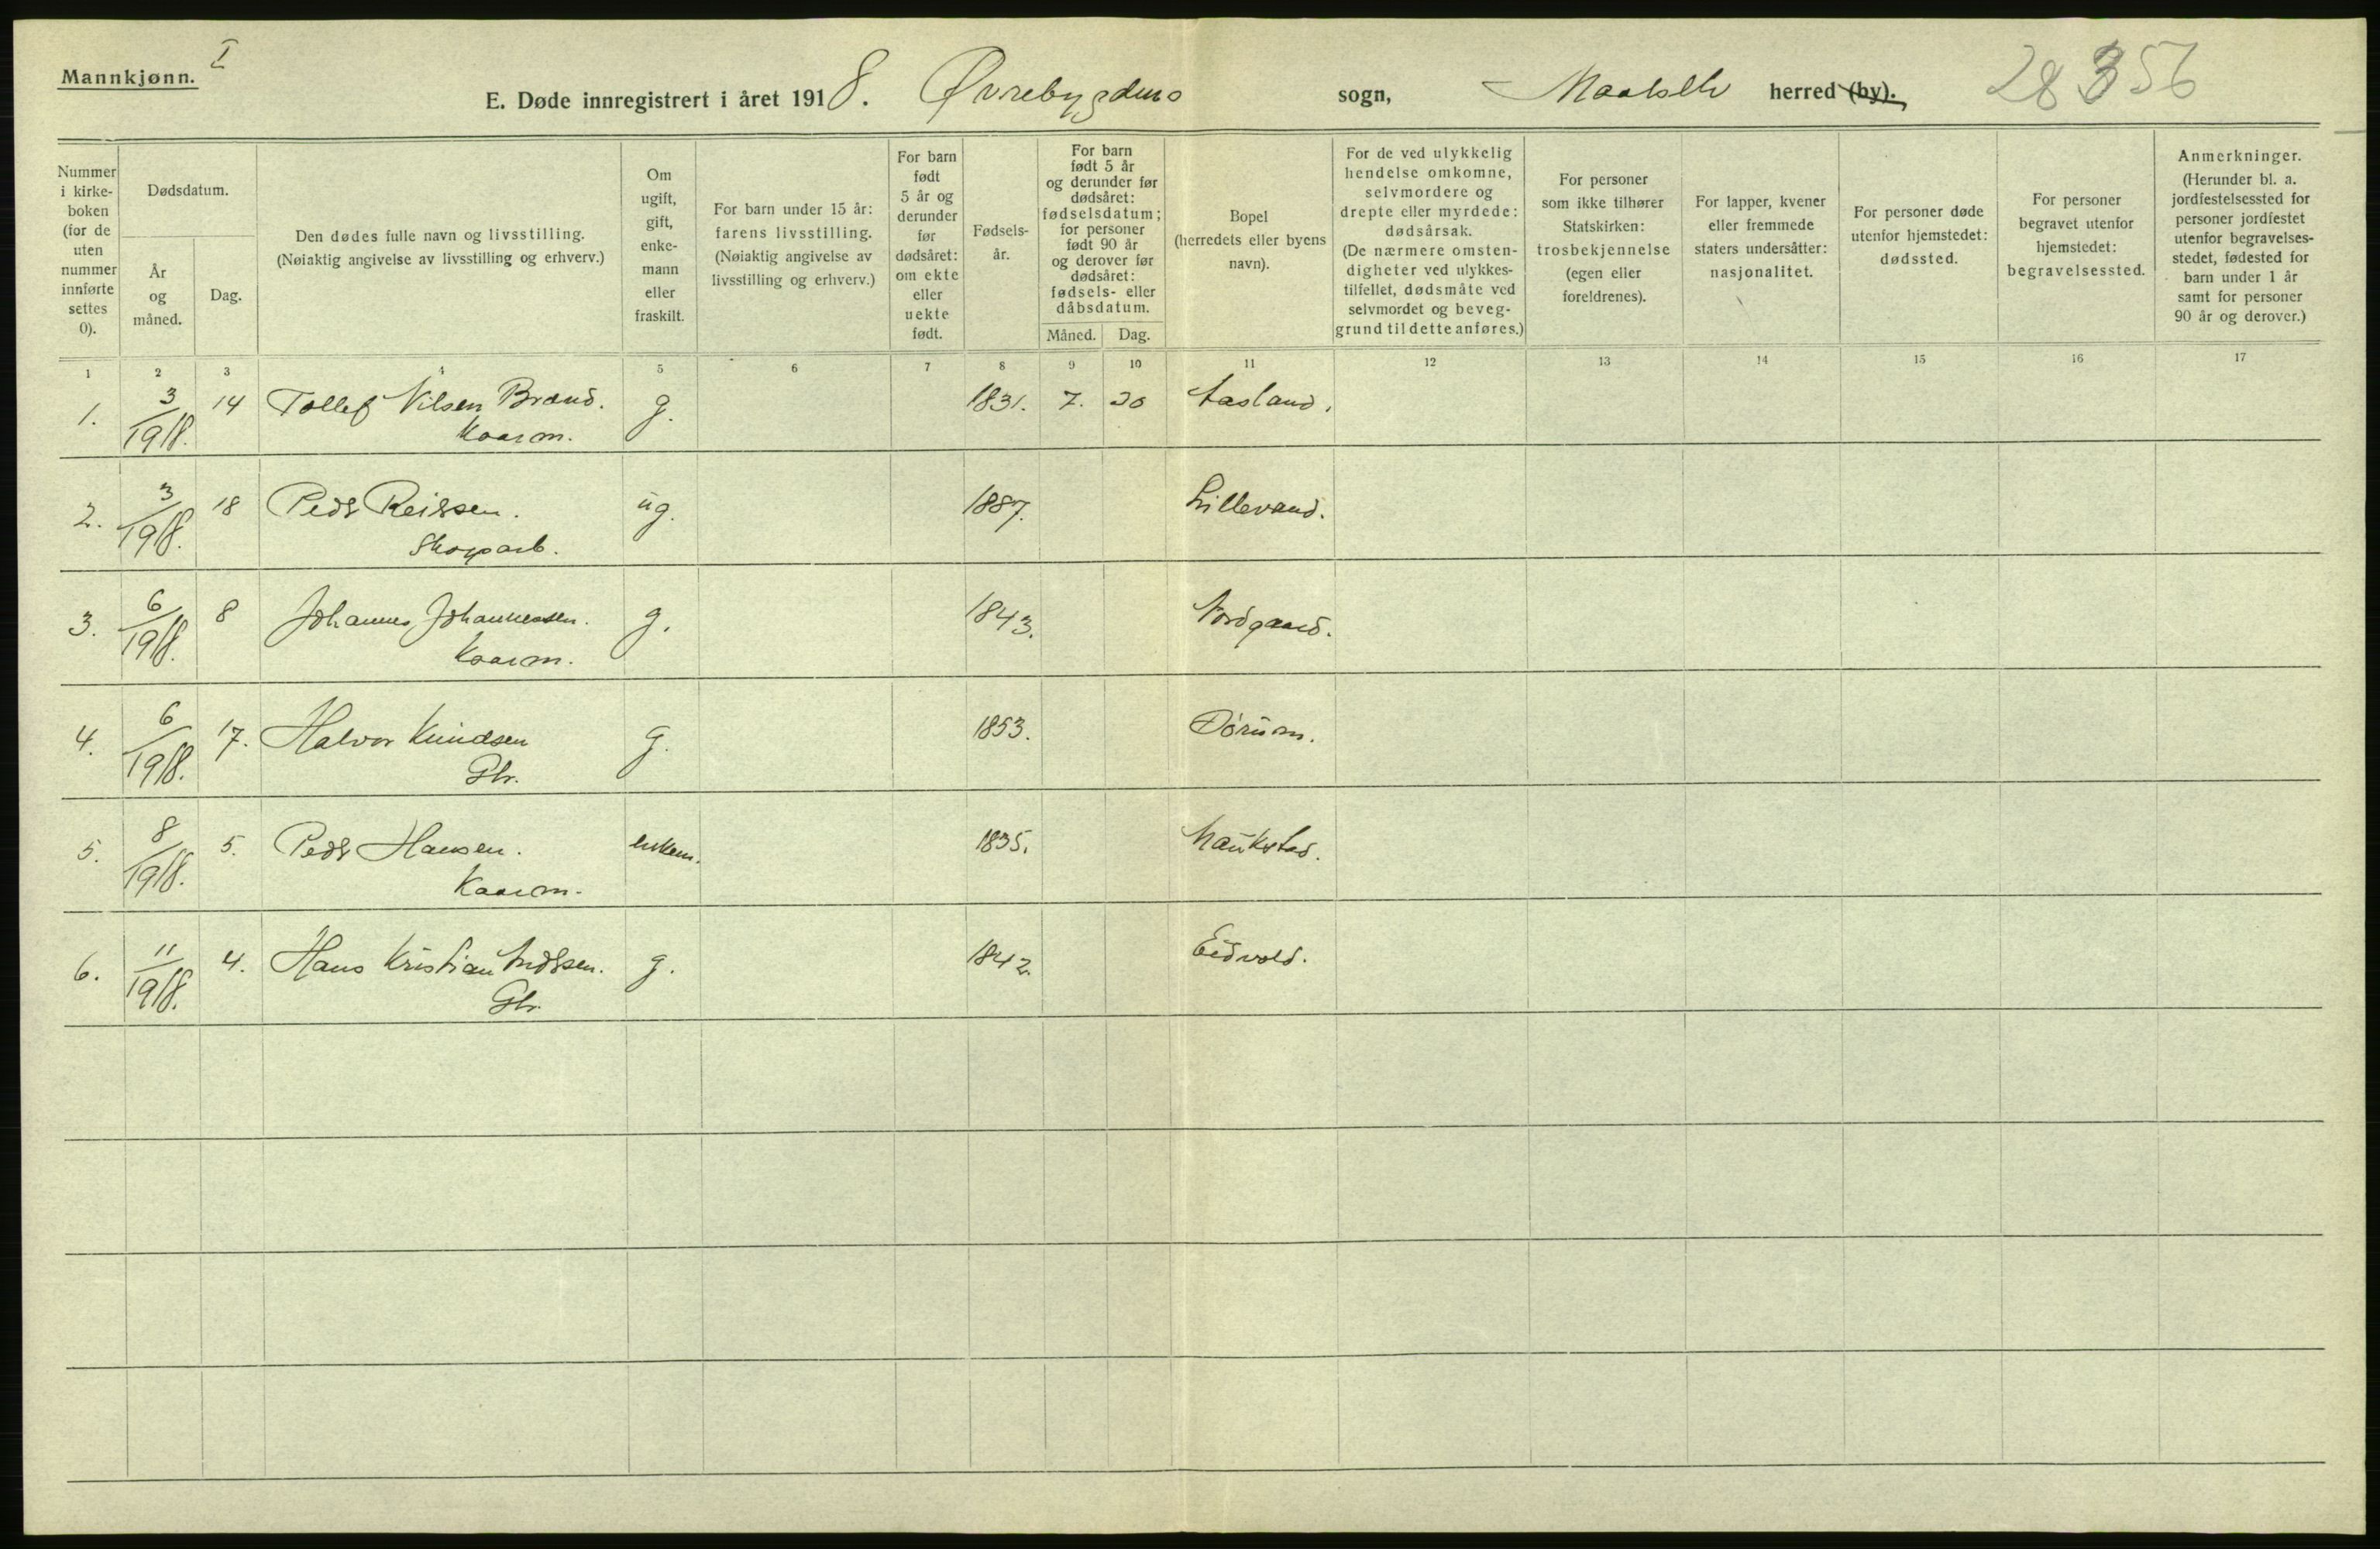 Mannkjønn. I
E. Døde innregistrert i året 1918. Øvrebygdens sogn, Maalselv herred (by). 28356
Nummer i kirke- boken (for de uten nummer innførte settes 0).
Dødsdatum.
År og måned.
Dag.
Den dødes fulle navn og livsstilling.
(Nøiaktig angivelse av livsstilling og erhverv.)
Om ugift, gift, enke- mann eller fraskilt.
For barn under 15 år: farens livsstilling. (Nøiaktig angivelse av livsstilling og erhverv.)
For barn født 5 år og derunder før dødsåret: om ekte eller uekte født.
Fødsels- år.
For barn født 5 år og derunder før dødsåret: fødselsdatum; for personer født 90 år og derover før dødsåret: fødsels- eller dåbsdatum.
Måned. Dag.
Bopel (herredets eller byens navn).
For de ved ulykkelig hendelse omkomne, selvmordere og drepte eller myrdede: dødsårsak. (De nærmere omsten- digheter ved ulykkes- tilfellet, dødsmåte ved selvmordet og beveg- grund til dette anføres.)
For personer som ikke tilhører Statskirken: trosbekjennelse (egen eller foreldrenes).
For lapper, kvener eller fremmede staters undersåtter: nasjonalitet.
For personer døde utenfor hjemstedet: dødssted.
For personer begravet utenfor hjemstedet: begravelsessted.
Anmerkninger. (Herunder bl. a. jordfestelsessted for personer jordfestet utenfor begravelses- stedet, fødested for barn under 1 år samt for personer 90 år og derover.)
1 2 3 4 5 6 7 8 9 10 11 12 13 14 15 16 17
1. 3/1918. 14 Tollef Nilsen Brand. g. 1831. 7. 20 Aasland.
Kaarm.
2. 3/1918. 18 Peder Reiersen. ug. 1887. Lillevand.
Skogarb.
3. 6/1918. 8 Johannes Johannessen. g. 1843. Nordgaard.
Kaarm.
4. 6/1918. 17. Halvor Knudsen g. 1853. Dørum.
Gbr.
5. 8/1918. 5. Peder Hansen. enkem. 1835. Maukstad.
Kaarm.
6. 11/1918. 4. Hans Kristian Anderssen. g. 1842. Eidvold.
Gbr.